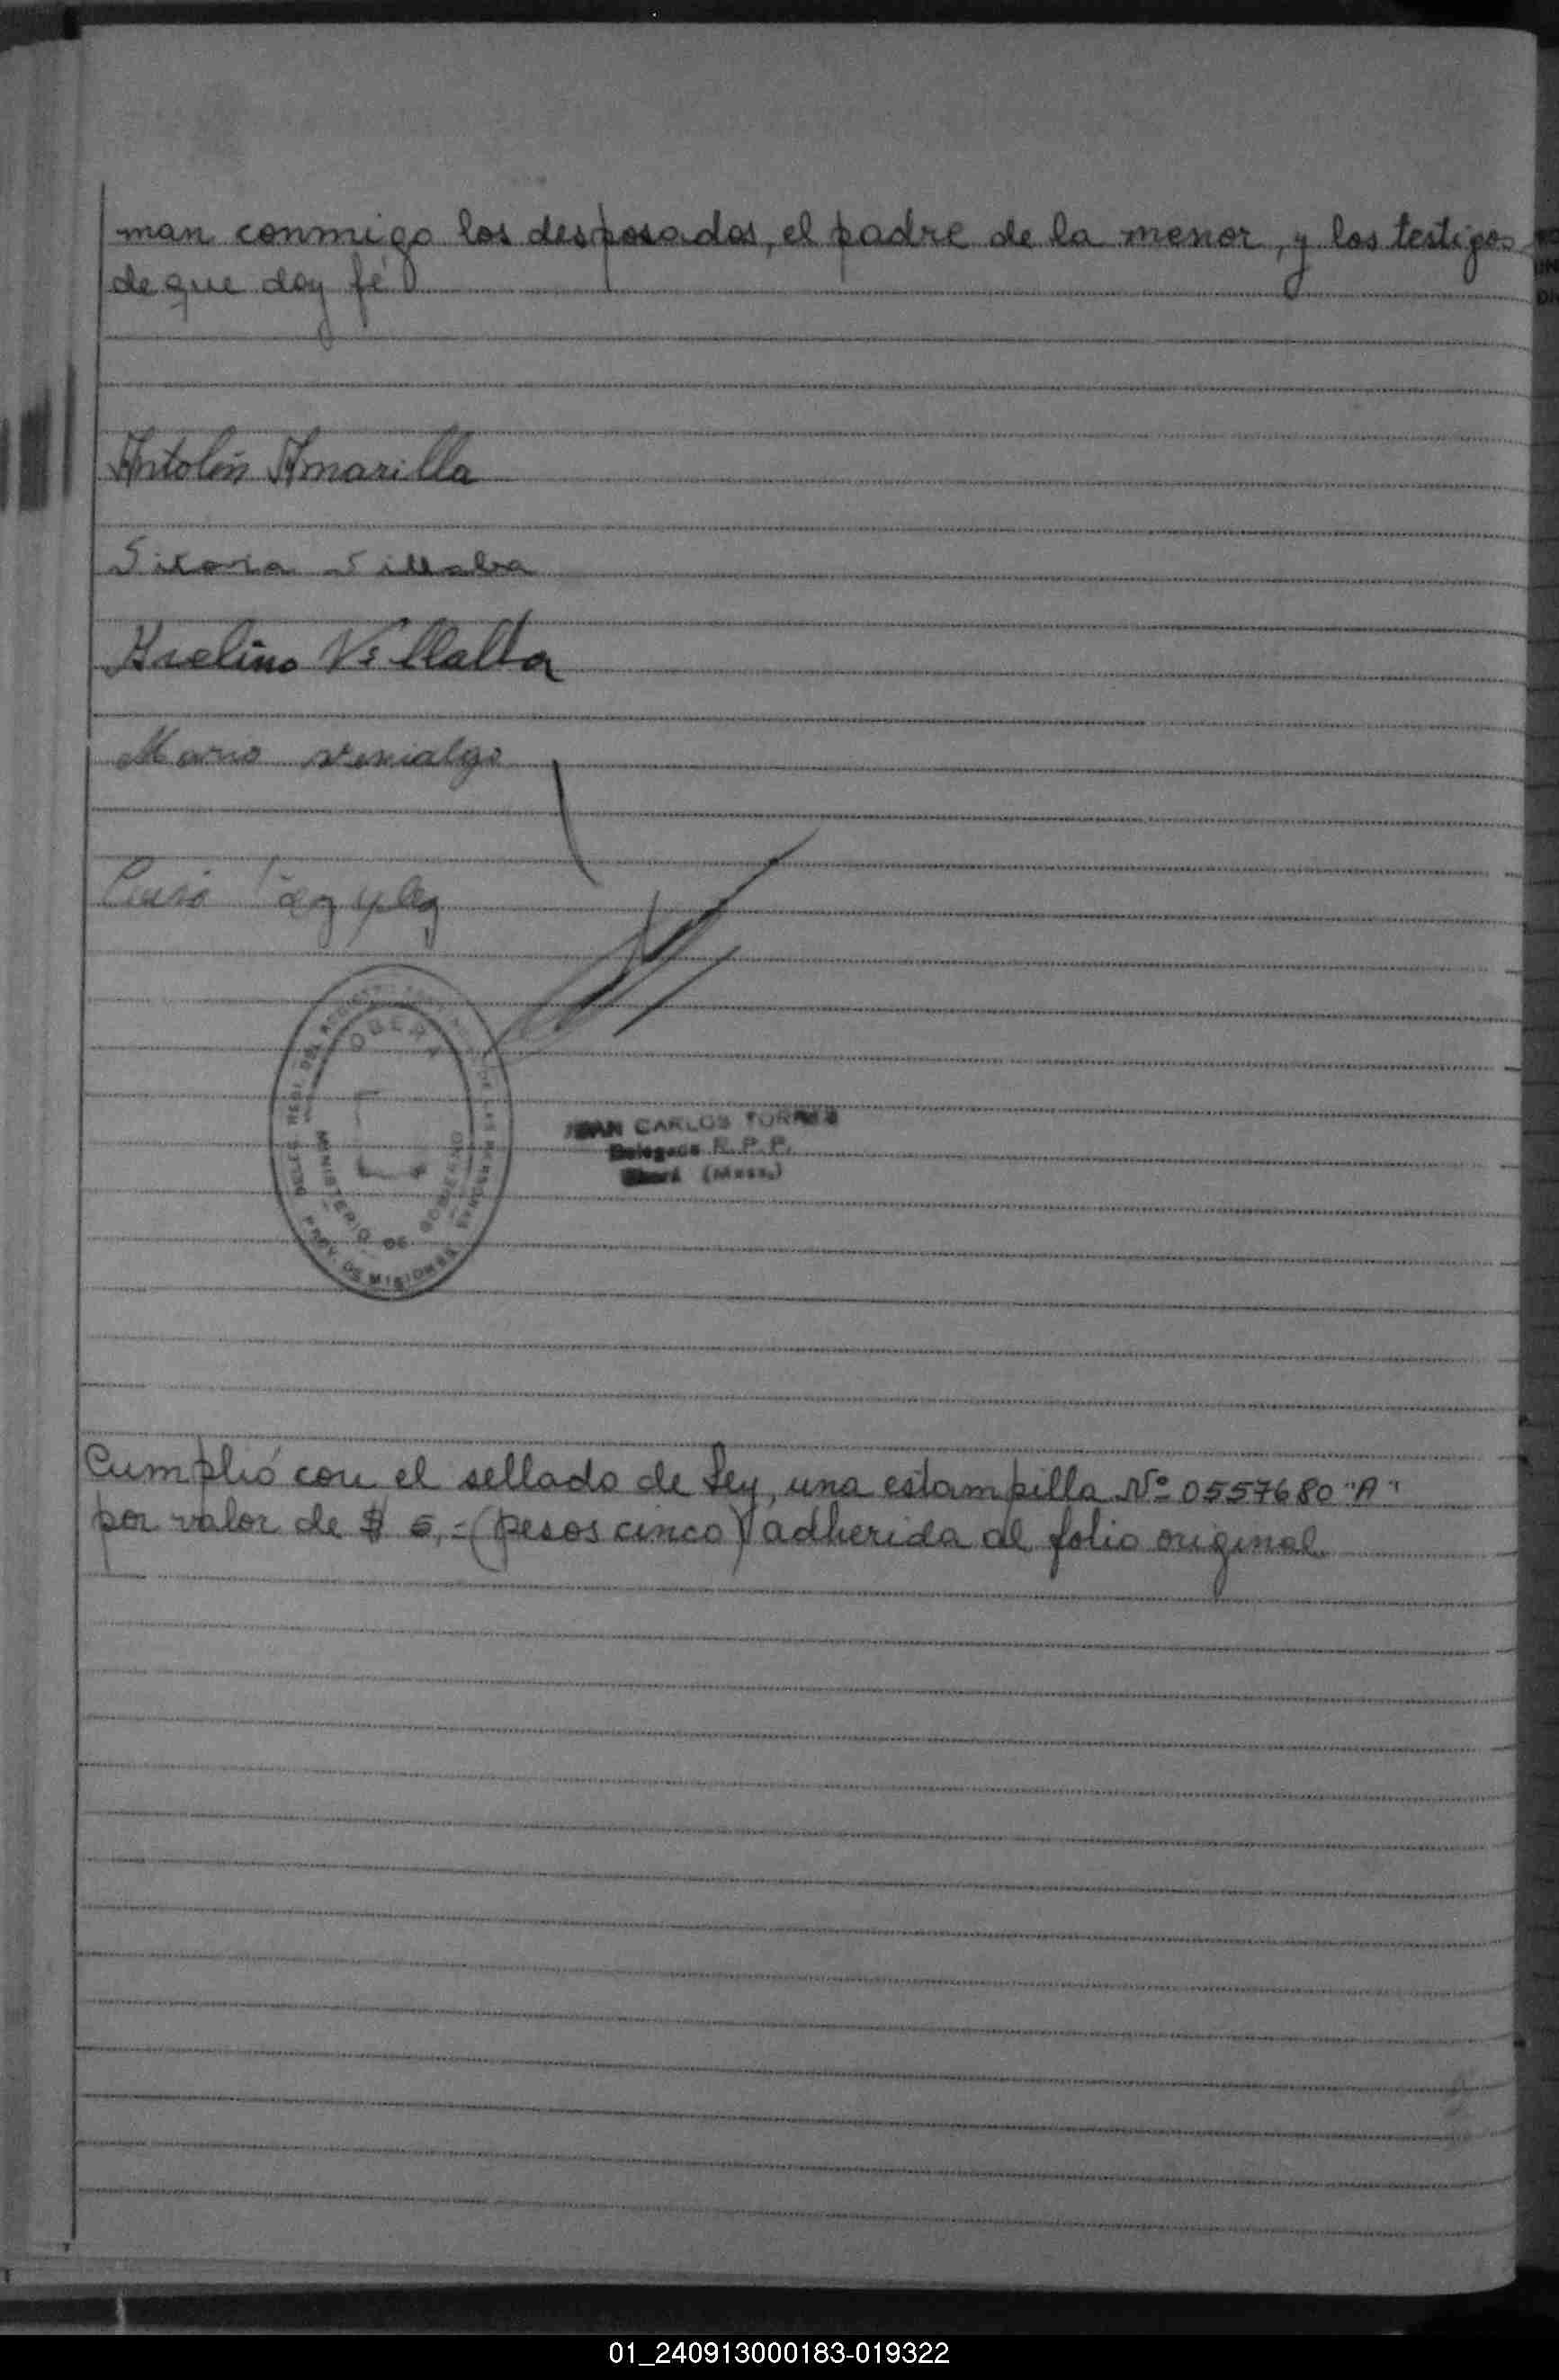 man conmigo los desposados, el padre de la menor, y los testigos
de que doy fé
Antolín Amarilla
Villalba
Avelino Villalba
Mario Venialgo
OBERA
MINISTERIO DE GOBIERNO
PROV. DE MISIONES
JUAN CARLOS TORRES
Delegado R. P. P.
Oberá (Mnes.)
Cumplió con el sellado de Ley, una estampilla Nº 0557680 "A"
por valor de $ 5,= (pesos cinco) adherida al folio original
01_240913000183-019322